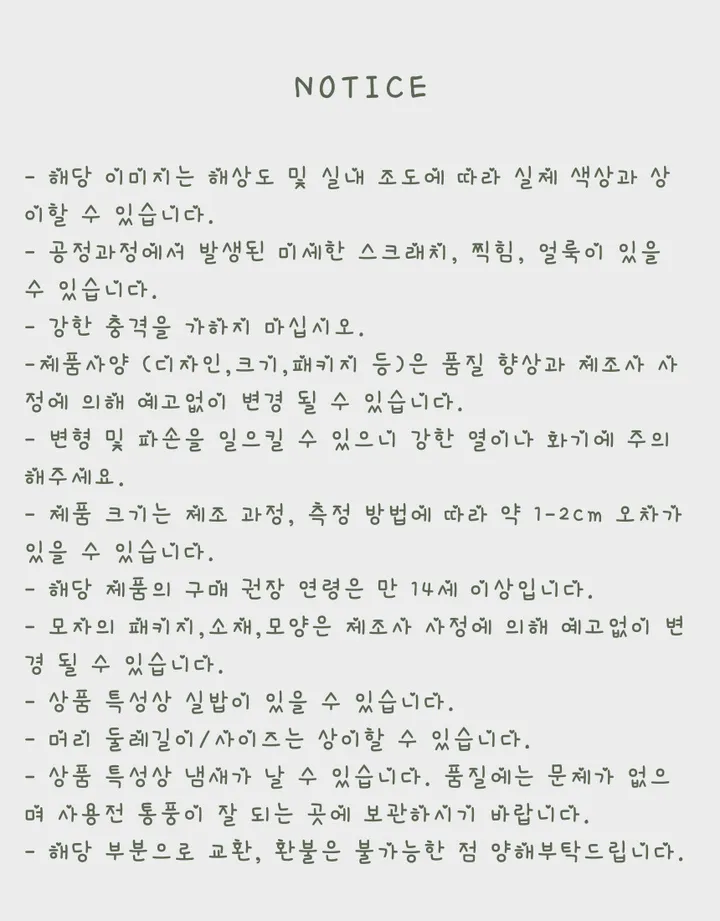 NOTICE
- 해당 이미지는 해상도 및 실내 조도에 따라 실제 색상과 상
이할 수 있습니다.
- 공정과정에서 발생된 미세한 스크래치, 찍힘, 얼룩이 있을
수 있습니다.
- 강한 충격을 가하지 마십시오.
-제품사양 (디자인,크기,패키지 등)은 품질 향상과 제조사 사
정에 의해 예고없이 변경 될 수 있습니다.
- 변형 및 파손을 일으킬 수 있으니 강한 열이나 화기에 주의
해주세요.
- 제품 크기는 제조 과정, 측정 방법에 따라 약 1-2cm 오차가
있을 수 있습니다.
- 해당 제품의 구매 권장 연령은 만 14세 이상입니다.
- 모자의 패키지,소재,모양은 제조사 사정에 의해 예고없이 변
경 될 수 있습니다.
- 상품 특성상 실밥이 있을 수 있습니다.
- 머리 둘레길이/사이즈는 상이할 수 있습니다.
- 상품 특성상 냄새가 날 수 있습니다. 품질에는 문제가 없으
며 사용전 통풍이 잘 되는 곳에 보관하시기 바랍니다.
- 해당 부분으로 교환, 환불은 불가능한 점 양해부탁드립니다.